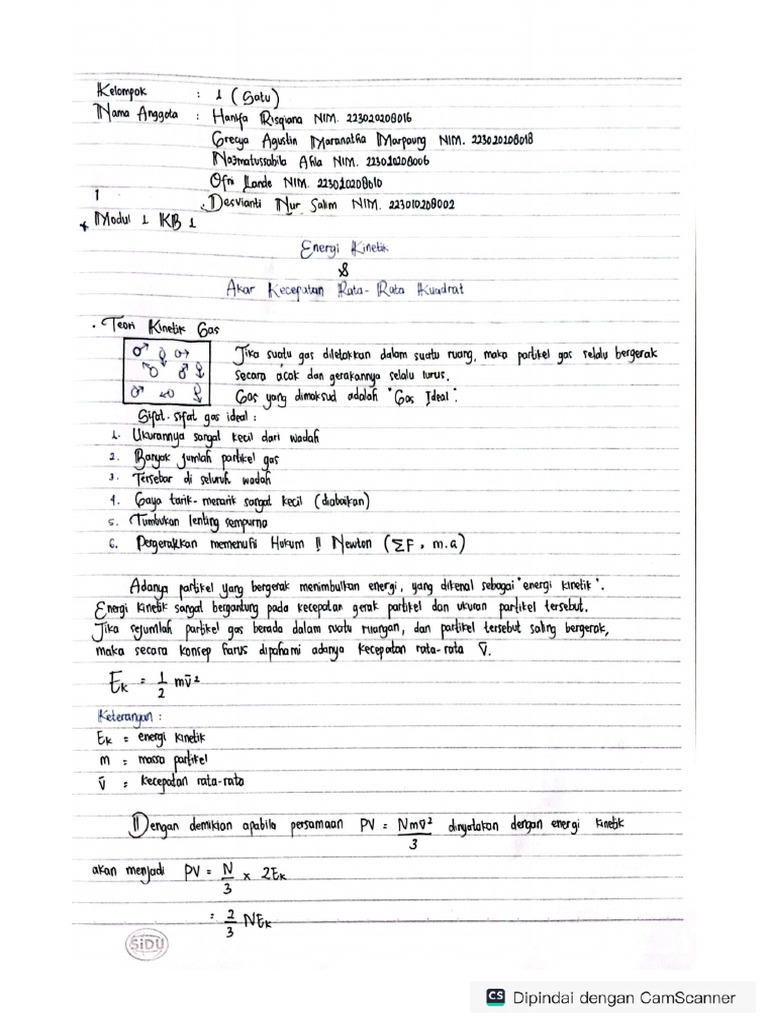 Kelompok : 1 (Satu)
Nama Anggota : Hanifa Risqiana NIM. 223020208016
Grecya Agustin Maranatha Marpaung NIM. 223020208018
Nazmatussabila Afila NIM. 223010208006
Ofni Lande NIM. 223010208010
1 Desvianti Nur Salim NIM. 223010208002
* Modul 1 KB 1
Energi Kinetik
&
Akar Kecepatan Rata-Rata Kuadrat
. Teori Kinetik Gas
Jika suatu gas diletakkan dalam suatu ruang, maka partikel gas selalu bergerak
secara acak dan gerakannya selalu lurus.
Gas yang dimaksud adalah "Gas Ideal".
Sifat-sifat gas ideal :
1. Ukurannya sangat kecil dari wadah
2. Banyak jumlah partikel gas
3. Tersebar di seluruh wadah
4. Gaya tarik-menarik sangat kecil (diabaikan)
5. Tumbukan lenting sempurna
6. Pergerakkan memenuhi Hukum II Newton (ΣF, m.a)
Adanya partikel yang bergerak menimbulkan energi, yang dikenal sebagai "energi kinetik".
Energi kinetik sangat bergantung pada kecepatan gerak partikel dan ukuran partikel tersebut.
Jika sejumlah partikel gas berada dalam suatu ruangan, dan partikel tersebut saling bergerak,
maka secara konsep harus dipahami adanya kecepatan rata-rata v̄.
Ek = 1/2 mv̄²
Keterangan :
Ek = energi kinetik
m = massa partikel
v̄ = kecepatan rata-rata
Dengan demikian apabila persamaan PV = Nmv̄²/3 dinyatakan dengan energi kinetik
akan menjadi PV = N/3 x 2Ek
= 2/3 NEk
SiDU
CS Dipindai dengan CamScanner